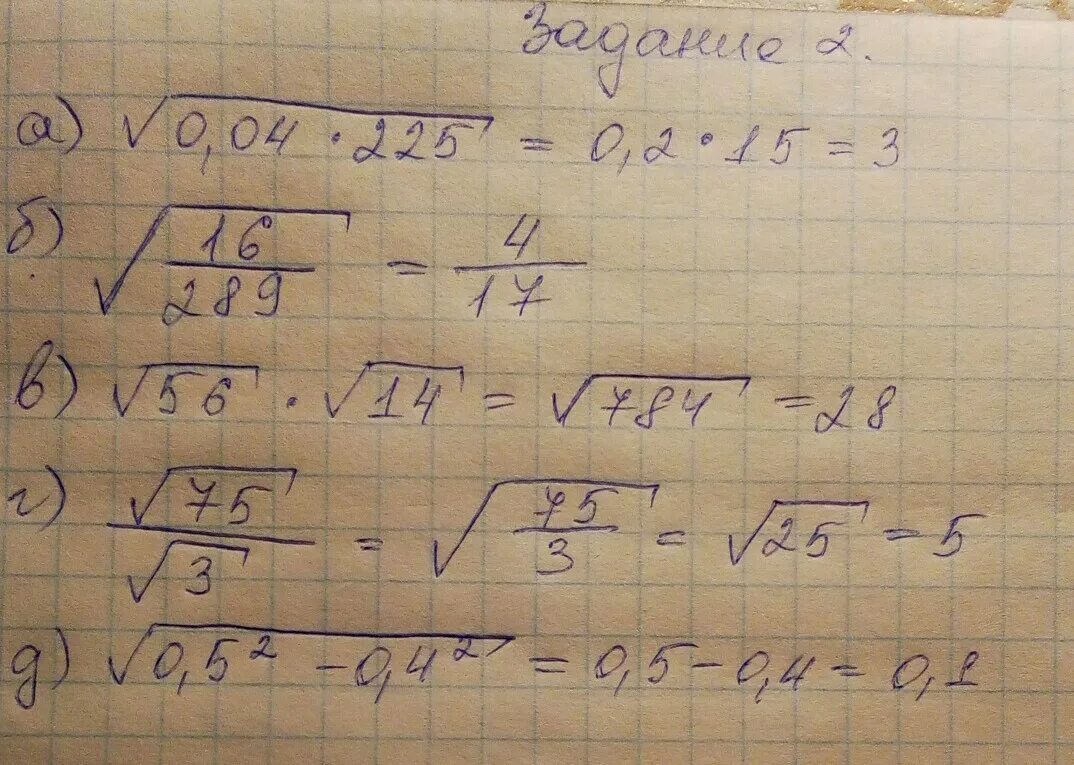 Задание 2.
а) √0,04 · 225 = 0,2 · 15 = 3
б) √16/289 = 4/17
в) √56 · √14 = √784 = 28
г) √75/√3 = √75/3 = √25 = 5
д) √0,5² - 0,4² = 0,5 - 0,4 = 0,1